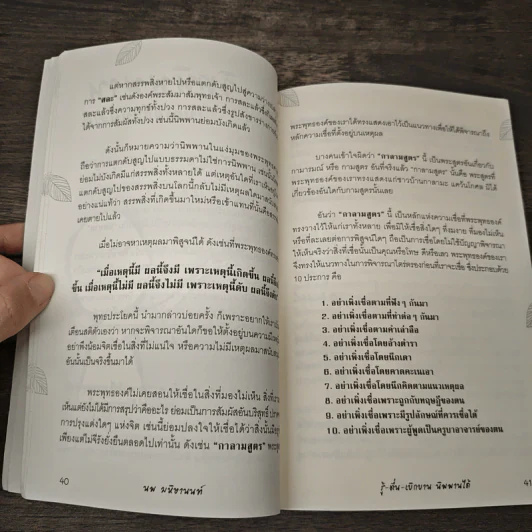 แต่หากสรรพสิ่งหายไปหรือแตกดับสูญไปสู่ความว่าง
การ "สละ" เช่นดังองค์พระสัมมาสัมพุทธเจ้า การสละแล้ว
สละแล้วซึ่งความทุกข์ทั้งปวง การสละแล้วซึ่งรูปสังขารร่างกาย
ได้จากการสัมผัสทั้งปวง เช่นนี้นิพพานย่อมบังเกิดแล้ว
ดังนั้นก็หมายความว่านิพพานในแง่มุมของพระพุทธ
ถือว่าการแตกดับสูญไปแบบธรรมดาไม่ใช่การนิพพาน เช่นนั้น
ย่อมไม่บังเกิดมีแก่สรรพสิ่งทั้งหลายได้ แต่เหตุอันใดที่เรา
แตกดับสูญไปของสรรพสิ่งบนโลกนี้กลับไม่มีเหตุผลใดมา
อย่างแน่แท้ว่า สรรพสิ่งที่เกิดขึ้นมาใหม่หรือเข้าแทนที่นั้นคือ
เคยตายไปแล้ว
เมื่อไม่อาจหาเหตุผลมาพิสูจน์ได้ ดังเช่นที่พระพุทธองค์
"เมื่อเหตุนี้มี ผลนี้จึงมี เพราะเหตุนี้เกิดขึ้น ผลนี้จึง
ขึ้น เมื่อเหตุนี้ไม่มี ผลนี้จึงไม่มี เพราะเหตุนี้ดับ ผลนี้จึงดับ"
พุทธประโยคนี้ นำมากล่าวบ่อยครั้ง ก็เพราะอยากให้เรา
เตือนสติตัวเองว่า หากจะพิจารณาอันใดก็ขอให้ตั้งอยู่บนความ
อย่าพึงน้อมจิตเชื่อในสิ่งที่ไม่แน่ใจ หรือความไม่มีเหตุผลมาสนับสนุน
อันนั้นเป็นจริงขึ้นมาได้
พระพุทธองค์ไม่เคยสอนให้เชื่อในสิ่งที่มองไม่เห็น สิ่งที่
เห็นแต่ยังไม่ได้มีการสรุปว่าคืออะไร ย่อมเป็นการสัมผัสอันบริสุทธิ์
การปรุงแต่งใดๆ แห่งจิต เช่นนี้ย่อมปลงใจให้เชื่อได้ว่าสิ่งนั้น
เพียงแต่ไม่จีรังยั่งยืนตลอดไปเท่านั้น ดังเช่น "กาลามสูตร" พระพุทธ
40
นพ มหิษานนท์
พระพุทธองค์ของเราได้ทรงแสดงเอาไว้เป็นแนวทางเพื่อให้ได้พิจารณาถึง
หลักความเชื่อที่ตั้งอยู่บนเหตุผล
บางคนเข้าใจผิดว่า "กาลามสูตร" นี้ เป็นพระสูตรอันเกี่ยวกับ
กามารมณ์ หรือ กามสูตร อันที่จริงแล้ว "กาลามสูตร" นั้นคือ พระสูตรที่
พระพุทธองค์ของเราทรงแสดงแก่ชาวบ้านกาลามะ แคว้นโกศล มิได้
เกี่ยวข้องอันใดกับกามสูตรนั้นเลย
อันว่า "กาลามสูตร" นี้ เป็นหลักแห่งความเชื่อที่พระพุทธองค์
ทรงวางไว้ให้แก่เราทั้งหลาย เพื่อมิให้เชื่อสิ่งใดๆ ที่งมงาย ที่มองไม่เห็น
หรือที่ละเลยต่อการพิสูจน์ใดๆ ถือเป็นการเชื่อโดยไม่ใช้ปัญญาพิจารณา
ให้เห็นจริงว่าสิ่งที่เชื่อนั้นเป็นคุณหรือโทษ ดีหรือเลว พระพุทธองค์ของเรา
จึงทรงให้แนวทางในการพิจารณาไตร่ตรองก่อนที่เราจะเชื่อ ซึ่งประกอบด้วย
10 ประการ คือ
1. อย่าเพิ่งเชื่อตามที่ฟังๆ กันมา
2. อย่าเพิ่งเชื่อตามที่ทำต่อๆ กันมา
3. อย่าเพิ่งเชื่อตามคำเล่าลือ
4. อย่าเพิ่งเชื่อโดยอ้างตำรา
5. อย่าเพิ่งเชื่อโดยนึกเดา
6. อย่าเพิ่งเชื่อโดยคาดคะเนเอา
7. อย่าเพิ่งเชื่อโดยนึกคิดตามแนวเหตุผล
8. อย่าเพิ่งเชื่อเพราะถูกกับทฤษฎีของตน
9. อย่าเพิ่งเชื่อเพราะมีรูปลักษณ์ที่ควรเชื่อได้
10. อย่าเพิ่งเชื่อเพราะผู้พูดเป็นครูบาอาจารย์ของตน
รู้-ตื่น-เบิกบาน นิพพานได้
41